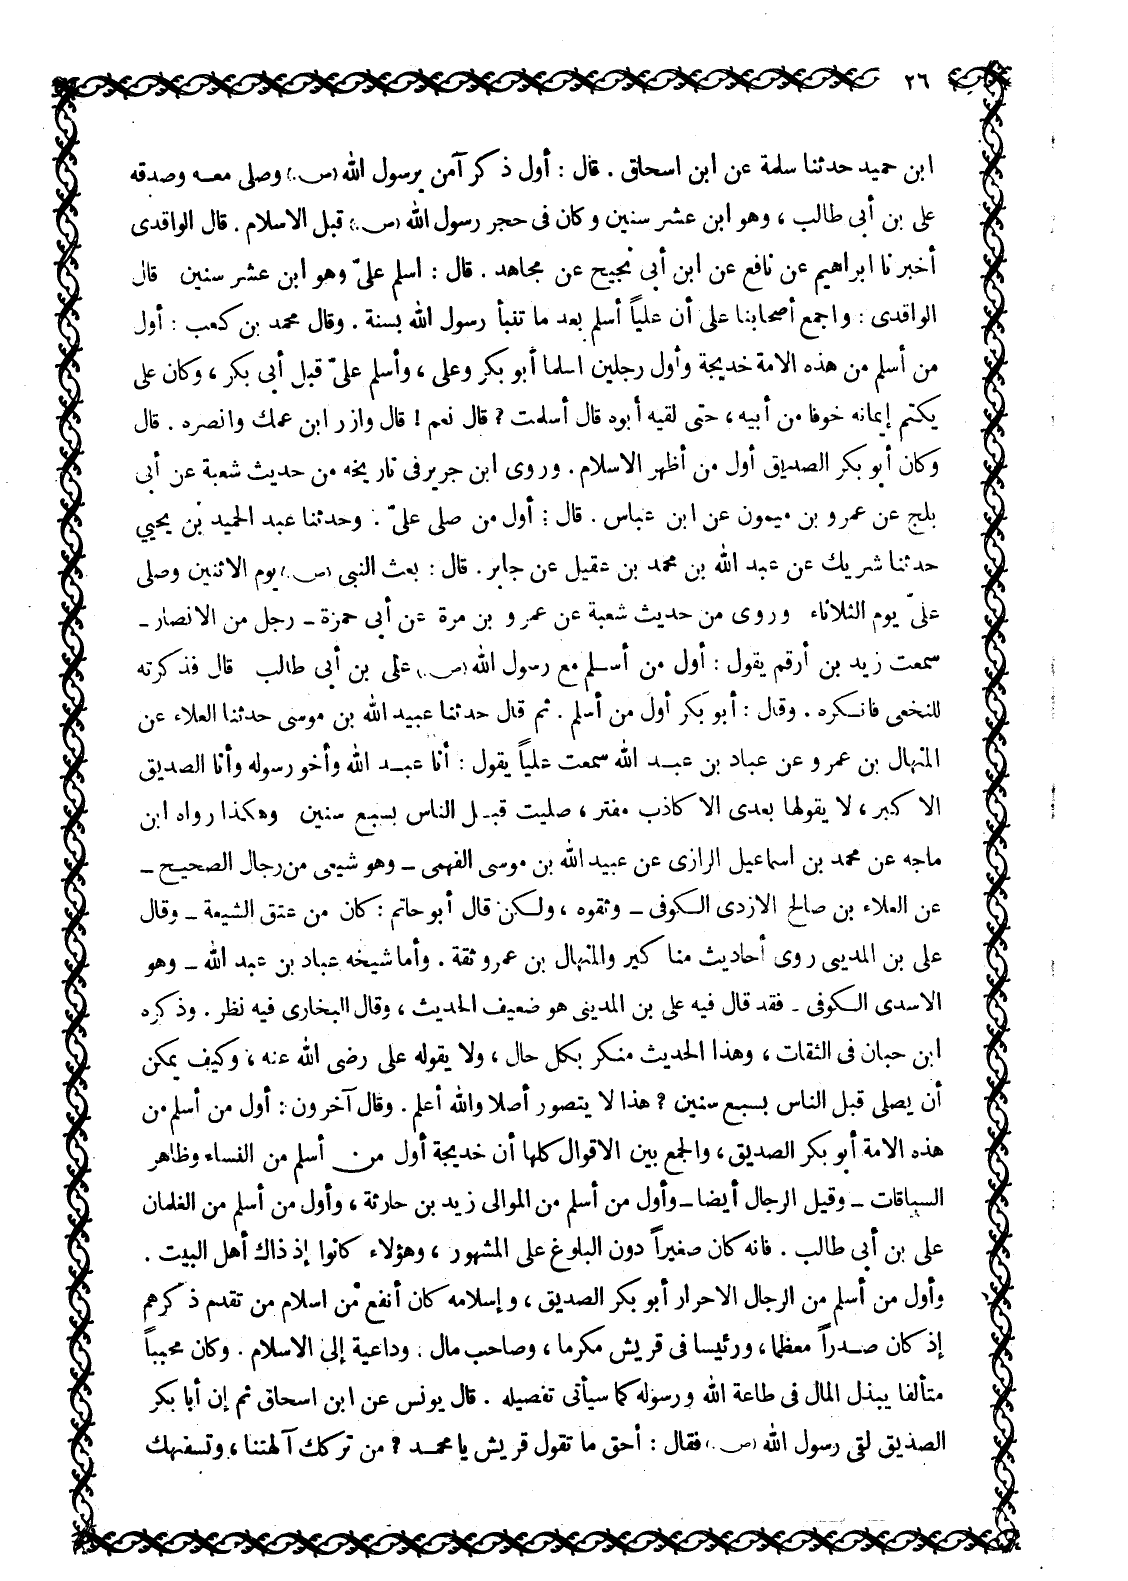 ٢٦
ابن حميد حدثنا سلمة عن ابن اسحاق . قال : أول ذكر آمن برسول الله (ص.) وصلى معه وصدقه
على بن أبى طالب ، وهو ابن عشر سنين وكان فى حجر رسول الله (ص.) قبل الاسلام . قال الواقدى
أخبرنا ابراهيم عن نافع عن ابن أبى نجيح عن مجاهد . قال : اسلم علىّ وهو ابن عشر سنين قال
الواقدى : واجمع أصحابنا على أن علياً أسلم بعد ما تنبأ رسول الله بسنة . وقال محمد بن كعب : أول
من أسلم من هذه الامة خديجة وأول رجلين اسلما أبو بكر وعلى ، وأسلم علىّ قبل أبى بكر ، وكان على
يكتم إيمانه خوفا من أبيه ، حتى لقيه أبوه قال أسلمت ? قال نعم ! قال وازر ابن عمك وانصره . قال
وكان أبو بكر الصديق أول من أظهر الاسلام . وروى ابن جرير فى تاريخه من حديث شعبة عن أبى
بلج عن عمرو بن ميمون عن ابن عباس . قال : أول من صلى علىّ . وحدثنا عبد الحميد بن يحيي
حدثنا شريك عن عبد الله بن محمد بن عقيل عن جابر . قال : بعث النبى (ص.) يوم الاثنين وصلى
علىّ يوم الثلاثاء وروى من حديث شعبة عن عمرو بن مرة عن أبى حمزة ـ رجل من الانصار ـ
سمعت زيد بن أرقم يقول : أول من أسلم مع رسول الله (ص.) على بن أبى طالب قال فذكرته
للنخعى فانكره . وقال : أبو بكر أول من أسلم . ثم قال حدثنا عبيد الله بن موسى حدثنا العلاء عن
المنهال بن عمرو عن عباد بن عبد الله سمعت علياً يقول : أنا عبد الله وأخو رسوله وأنا الصديق
الاكبر ، لا يقولها بعدى الا كاذب مفتر ، صليت قبل الناس بسبع سنين وهكذا رواه ابن
ماجه عن محمد بن اسماعيل الرازى عن عبيد الله بن موسى الفهمى ـ وهو شيعى من رجال الصحيح ـ
عن العلاء بن صالح الازدى الكوفى ـ وثقوه ، ولكن قال أبو حاتم : كان من عتق الشيعة ـ وقال
على بن المدينى روى أحاديث مناكير والمنهال بن عمرو ثقة . وأما شيخه عباد بن عبد الله ـ وهو
الاسدى الكوفى ـ فقد قال فيه على بن المدينى هو ضعيف الحديث ، وقال البخارى فيه نظر . وذكره
ابن حبان فى الثقات ، وهذا الحديث منكر بكل حال ، ولا يقوله على رضى الله عنه ، وكيف يمكن
أن يصلى قبل الناس بسبع سنين ? هذا لا يتصور أصلا والله أعلم . وقال آخرون : أول من أسلم من
هذه الامة أبو بكر الصديق ، والجمع بين الاقوال كلها أن خديجة أول من أسلم من النساء وظاهر
السياقات ـ وقيل الرجال أيضا ـ وأول من أسلم من الموالى زيد بن حارثة ، وأول من أسلم من الغلمان
على بن أبى طالب . فانه كان صغيراً دون البلوغ على المشهور ، وهؤلاء كانوا إذ ذاك أهل البيت .
وأول من أسلم من الرجال الاحرار أبو بكر الصديق ، وإسلامه كان أنفع من اسلام من تقدم ذكرهم
إذ كان صدراً معظما ، ورئيسا فى قريش مكرما ، وصاحب مال . وداعية إلى الاسلام . وكان محبباً
متألفا يبذل المال فى طاعة الله ورسوله كما سيأتى تفصيله . قال يونس عن ابن اسحاق ثم إن أبا بكر
الصديق لقى رسول الله (ص.) فقال : أحق ما تقول قريش يا محمد ? من تركك آلهتنا ، وتسفيهك